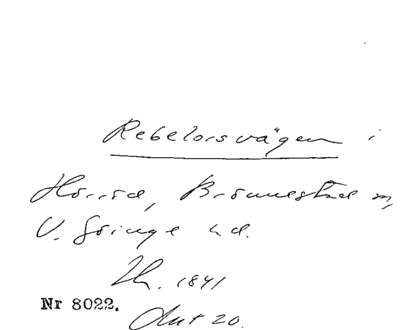 Rebelorsvägen i
Hörröd, Brönnestad m,
V. Göinge hd.
Th. 1841
Nr 8022.
Ant 20.